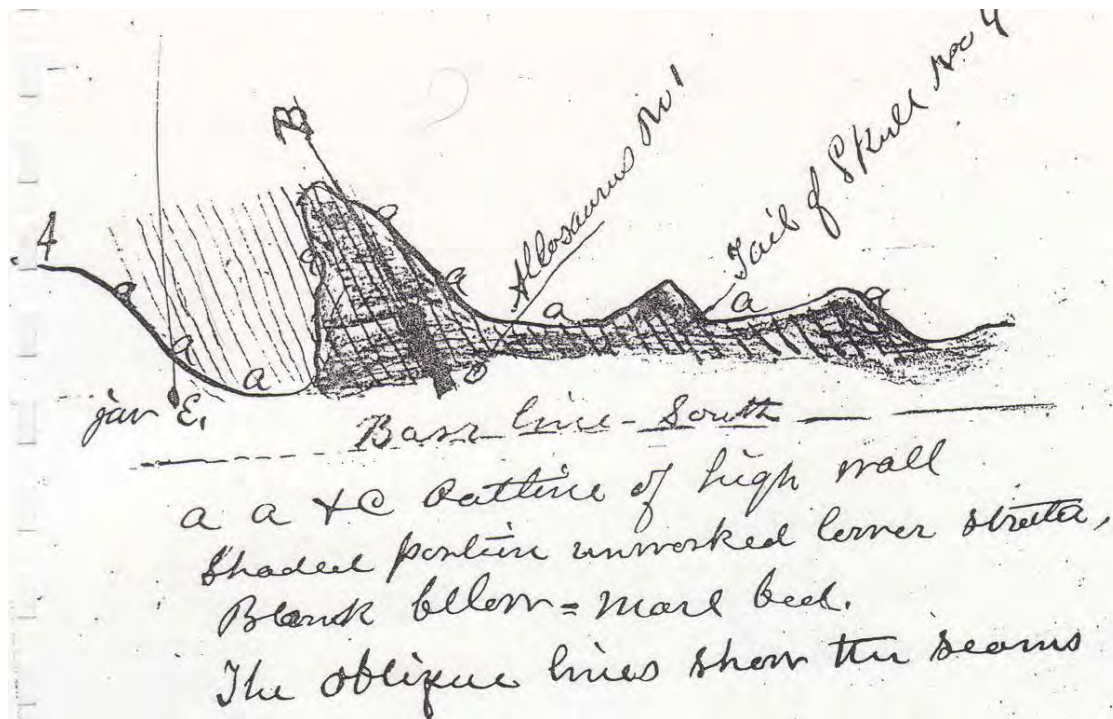 Tail of Skull No 4
Allosaurus No 1
B
4
a
a
a
a
a
a
a
a
a
a
D
jaw E.
Base line - South
a a &c Outline of high wall
Shaded portion unworked lower strata,
Blank bellow = Marl bed.
The oblique lines show the seams